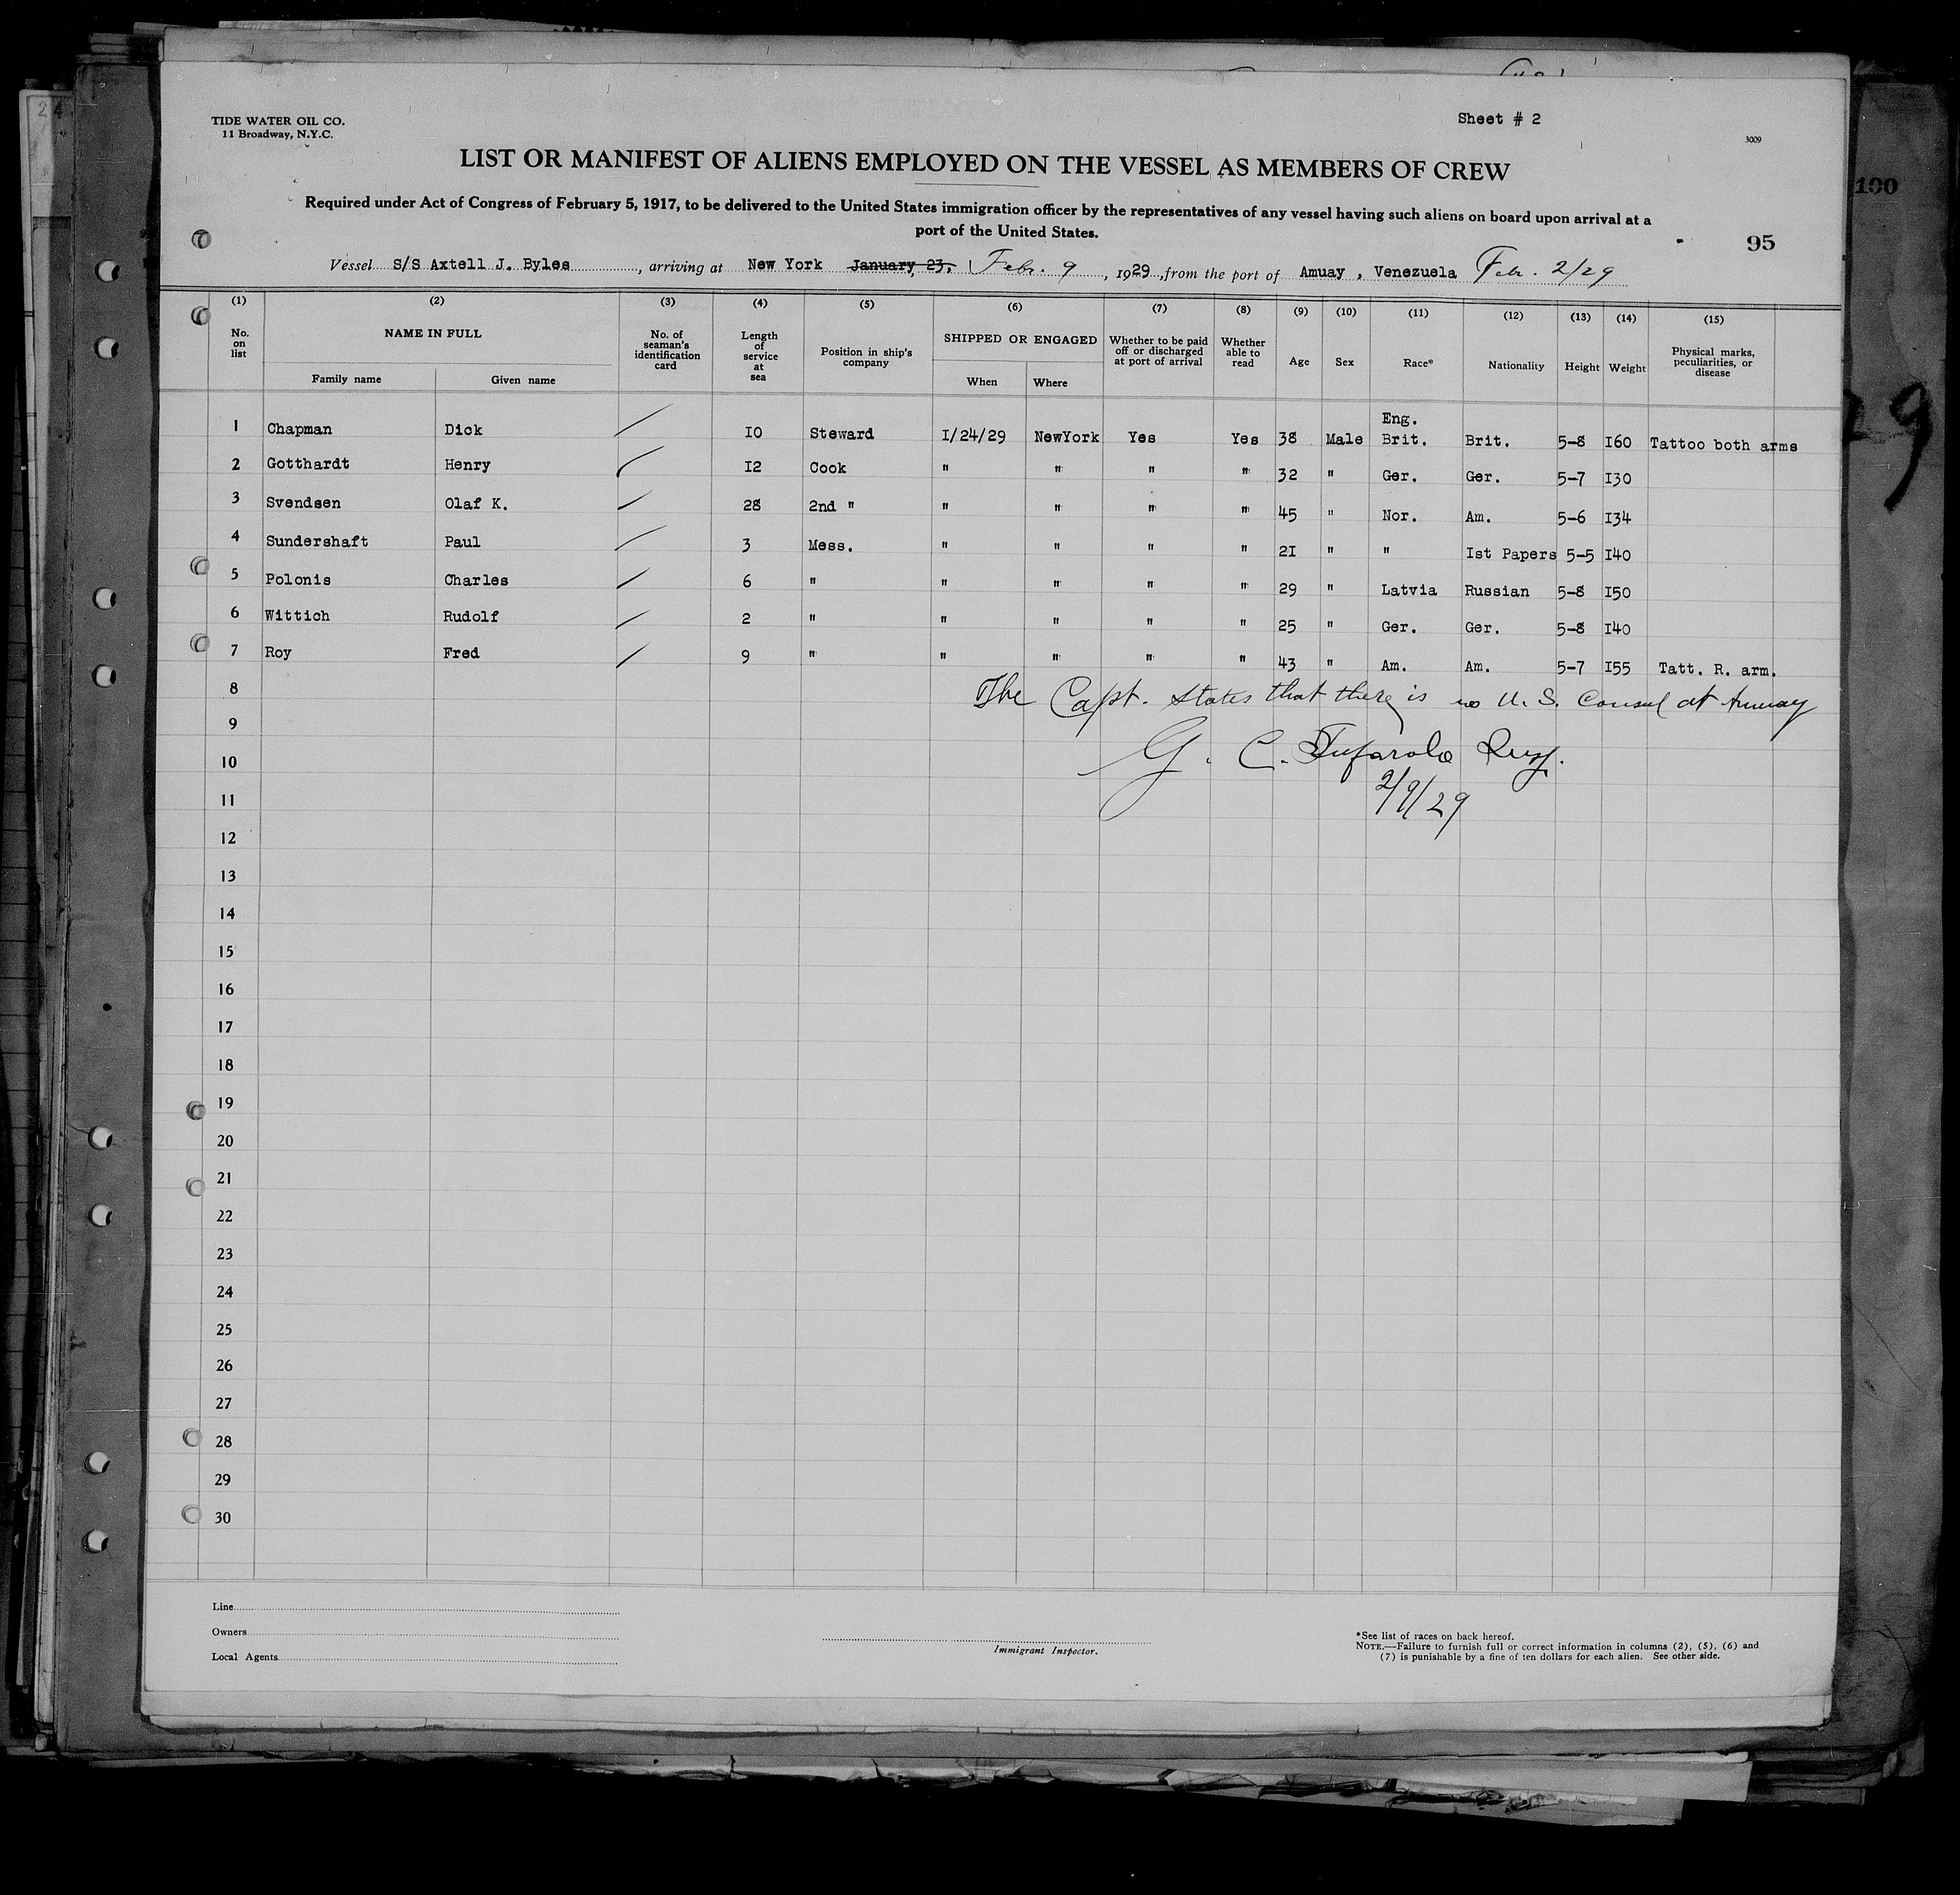 TIDE WATER OIL CO.
11 Broadway, N.Y.C.
Sheet # 2
3009
LIST OR MANIFEST OF ALIENS EMPLOYED ON THE VESSEL AS MEMBERS OF CREW
Required under Act of Congress of February 5, 1917, to be delivered to the United States immigration officer by the representatives of any vessel having such aliens on board upon arrival at a
port of the United States.
95
100
Vessel S/S Axtell J. Byles, arriving at New York January 23, Febr. 9, 1929, from the port of Amuay , Venezuela Febr. 2/29
(1) (2) (3) (4) (5) (6) (7) (8) (9) (10) (11) (12) (13) (14) (15)
No. on list NAME IN FULL Family name Given name No. of seaman's identification card Length of service at sea Position in ship's company SHIPPED OR ENGAGED When Where Whether to be paid off or discharged at port of arrival Whether able to read Age Sex Race* Nationality Height Weight Physical marks, peculiarities, or disease
Eng.
1 Chapman Dick 10 Steward 1/24/29 NewYork Yes Yes 38 Male Brit. Brit. 5-8 160 Tattoo both arms
2 Gotthardt Henry 12 Cook " " " " 32 " Ger. Ger. 5-7 130
3 Svendsen Olaf K. 28 2nd " " " " " 45 " Nor. Am. 5-6 134
4 Sundershaft Paul 3 Mess. " " " " 21 " " Ist Papers 5-5 140
5 Polonis Charles 6 " " " " " 29 " Latvia Russian 5-8 150
6 Wittich Rudolf 2 " " " " " 25 " Ger. Ger. 5-8 140
7 Roy Fred 9 " " " " " 43 " Am. Am. 5-7 155 Tatt. R. arm.
8 The Capt. states that there is no U. S. Consul at Amuay
9
10 G. C.
11 2/9/29
12
13
14
15
16
17
18
19
20
21
22
23
24
25
26
27
28
29
30
Line
Owners
Local Agents
Immigrant Inspector.
*See list of races on back hereof.
NOTE.—Failure to furnish full or correct information in columns (2), (5), (6) and
(7) is punishable by a fine of ten dollars for each alien. See other side.